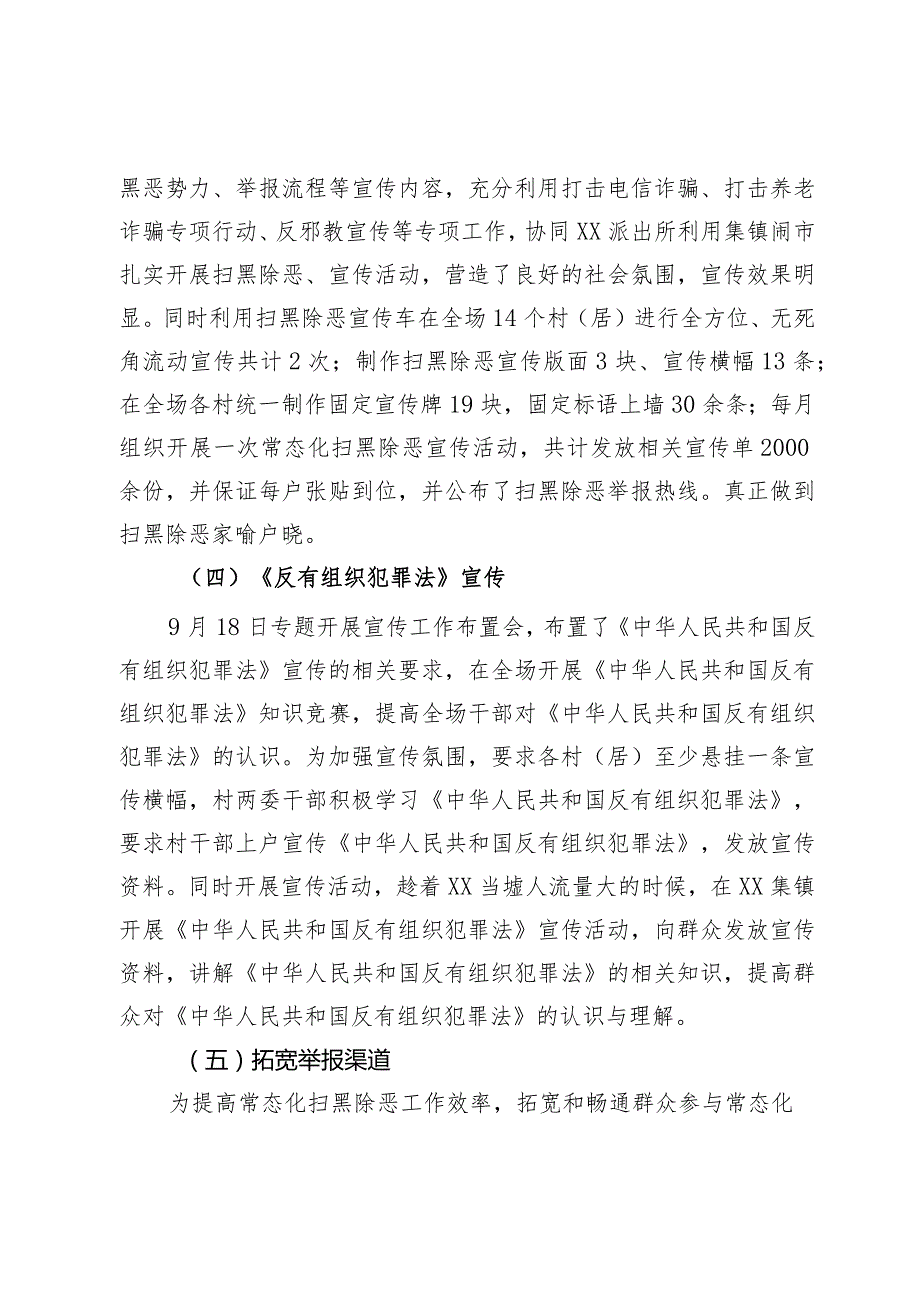 黑恶势力、举报流程等宣传内容，充分利用打击电信诈骗、打击养老
诈骗专项行动、反邪教宣传等专项工作，协同 XX 派出所利用集镇闹市
扎实开展扫黑除恶、宣传活动，营造了良好的社会氛围，宣传效果明
显。同时利用扫黑除恶宣传车在全场 14 个村（居）进行全方位、无死
角流动宣传共计 2 次；制作扫黑除恶宣传版面 3 块、宣传横幅 13 条；
在全场各村统一制作固定宣传牌 19 块，固定标语上墙 30 余条；每月
组织开展一次常态化扫黑除恶宣传活动，共计发放相关宣传单 2000
余份，并保证每户张贴到位，并公布了扫黑除恶举报热线。真正做到
扫黑除恶家喻户晓。
（四）《反有组织犯罪法》宣传
9 月 18 日专题开展宣传工作布置会，布置了《中华人民共和国反
有组织犯罪法》宣传的相关要求，在全场开展《中华人民共和国反有
组织犯罪法》知识竞赛，提高全场干部对《中华人民共和国反有组织
犯罪法》的认识。为加强宣传氛围，要求各村（居）至少悬挂一条宣
传横幅，村两委干部积极学习《中华人民共和国反有组织犯罪法》，
要求村干部上户宣传《中华人民共和国反有组织犯罪法》，发放宣传
资料。同时开展宣传活动，趁着 XX 当墟人流量大的时候，在 XX 集镇
开展《中华人民共和国反有组织犯罪法》宣传活动，向群众发放宣传
资料，讲解《中华人民共和国反有组织犯罪法》的相关知识，提高群
众对《中华人民共和国反有组织犯罪法》的认识与理解。
（五）拓宽举报渠道
为提高常态化扫黑除恶工作效率，拓宽和畅通群众参与常态化